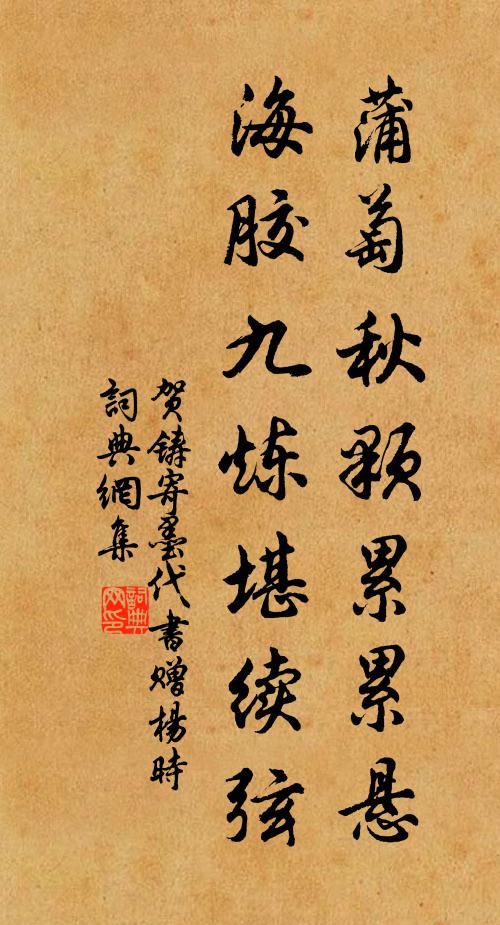 蒲萄秋颗累累悬
海胶九炼堪续弦
贺铸寄墨代书赠杨时
詞典網集
詞典网印